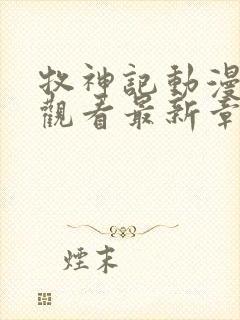 牧神記動漫
觀看最新章
煙末